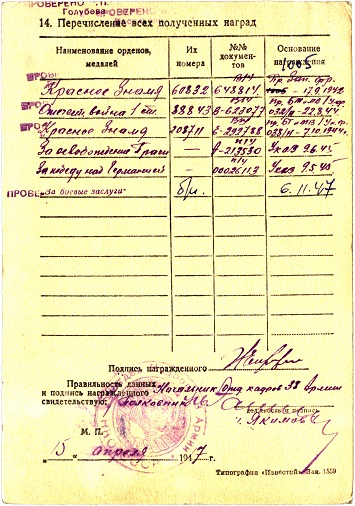 ПРОВЕРЕНО
Голубева
14. Перечисление всех полученных наград
Наименование орденов, медалей
Их номера
№№ документов
Основание награждения
1005
Красное Знамя 60832 648814 17.9.1942
Отечест. война 1 ст. 88843 В-623077 22.8.44
Красное Знамя 208711 Б-299788 7.10.1944
За освобождение Праги — А-213530 Указ 9.6.45
За победу над Германией — 0002611.3 Указ 9.5.45
ПРОВЕ „За боевые заслуги“ б/н. 6.11.47
Подпись награжденного
Правильность данных
и подпись награжденного
свидетельствую:
Начальник Отд. кадров 38 Армии
полковник
(должность и подпись)
Якимов
М. П.
„15“ апреля 1947 г.
Типография «Известий» Зак. 1559